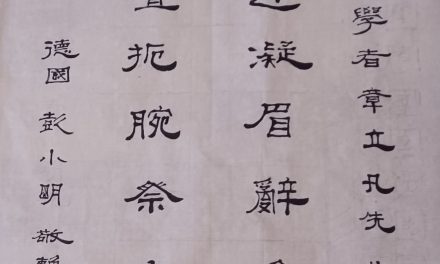 學者章立凡先
凝眉辭
扼腕祭
德國 彭小明 敬